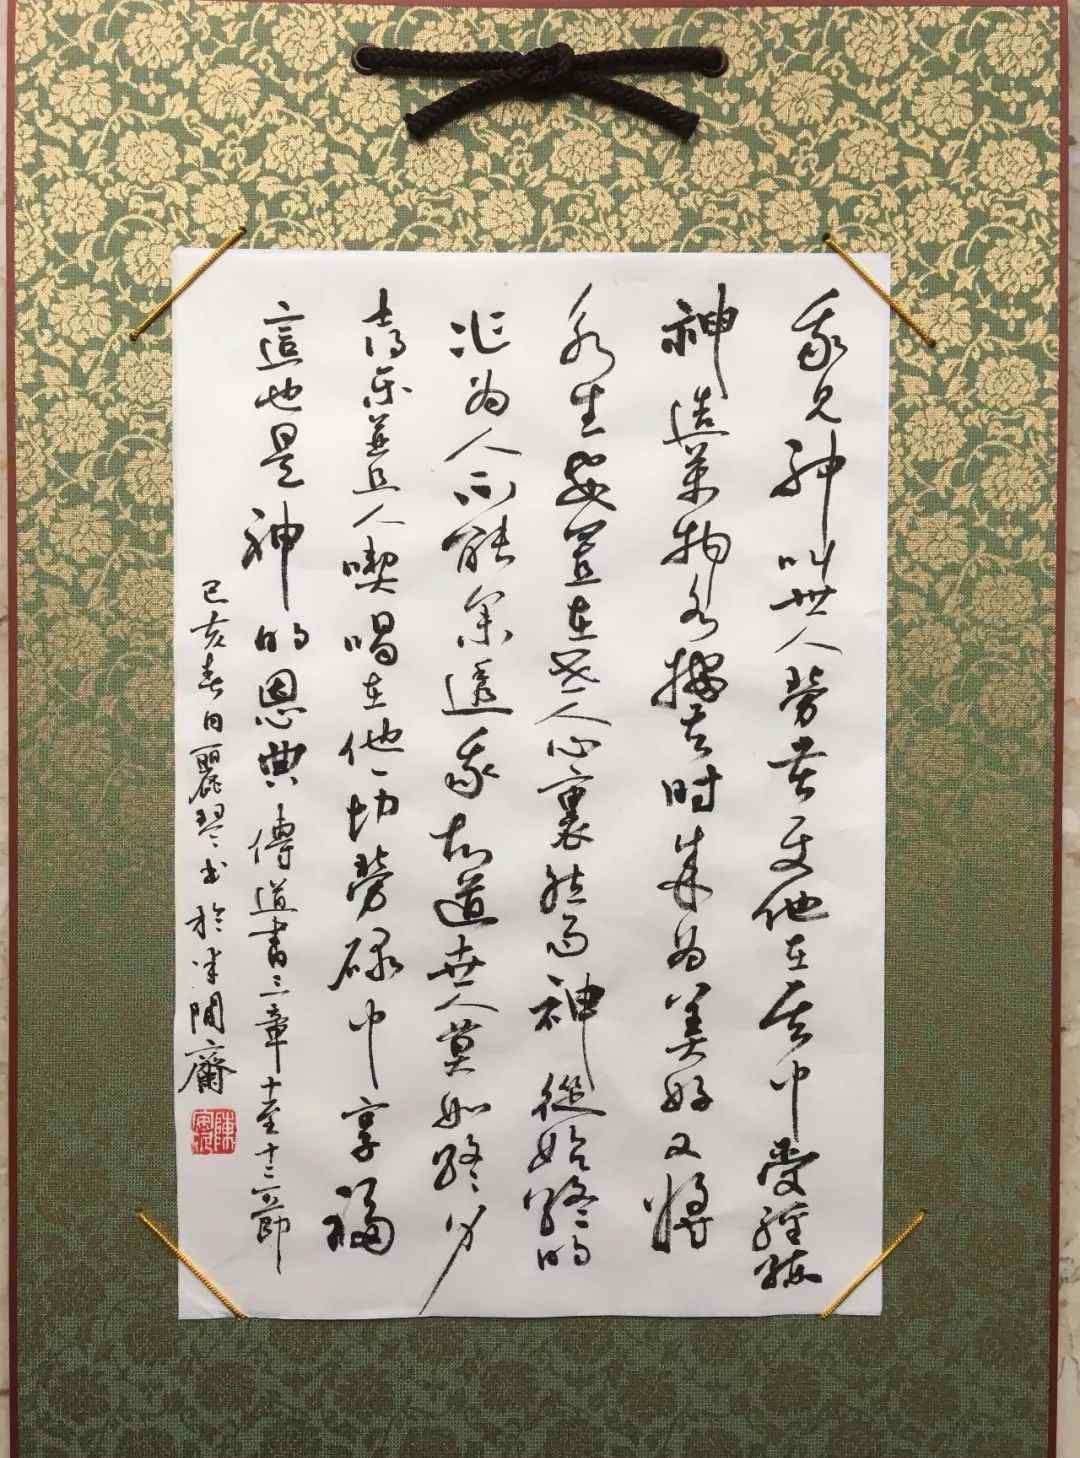 我見神叫世人勞苦使他在其中受經練
神造萬物各按其時成為美好又將
永生安置在世人心裏然而神從始終的
作為人不能參透我知道世人莫如終身
樂並且人喫喝在他一切勞碌中享福
這也是神的恩典傳道書三章十至十三節
己亥春日麗琴書於半閒齋